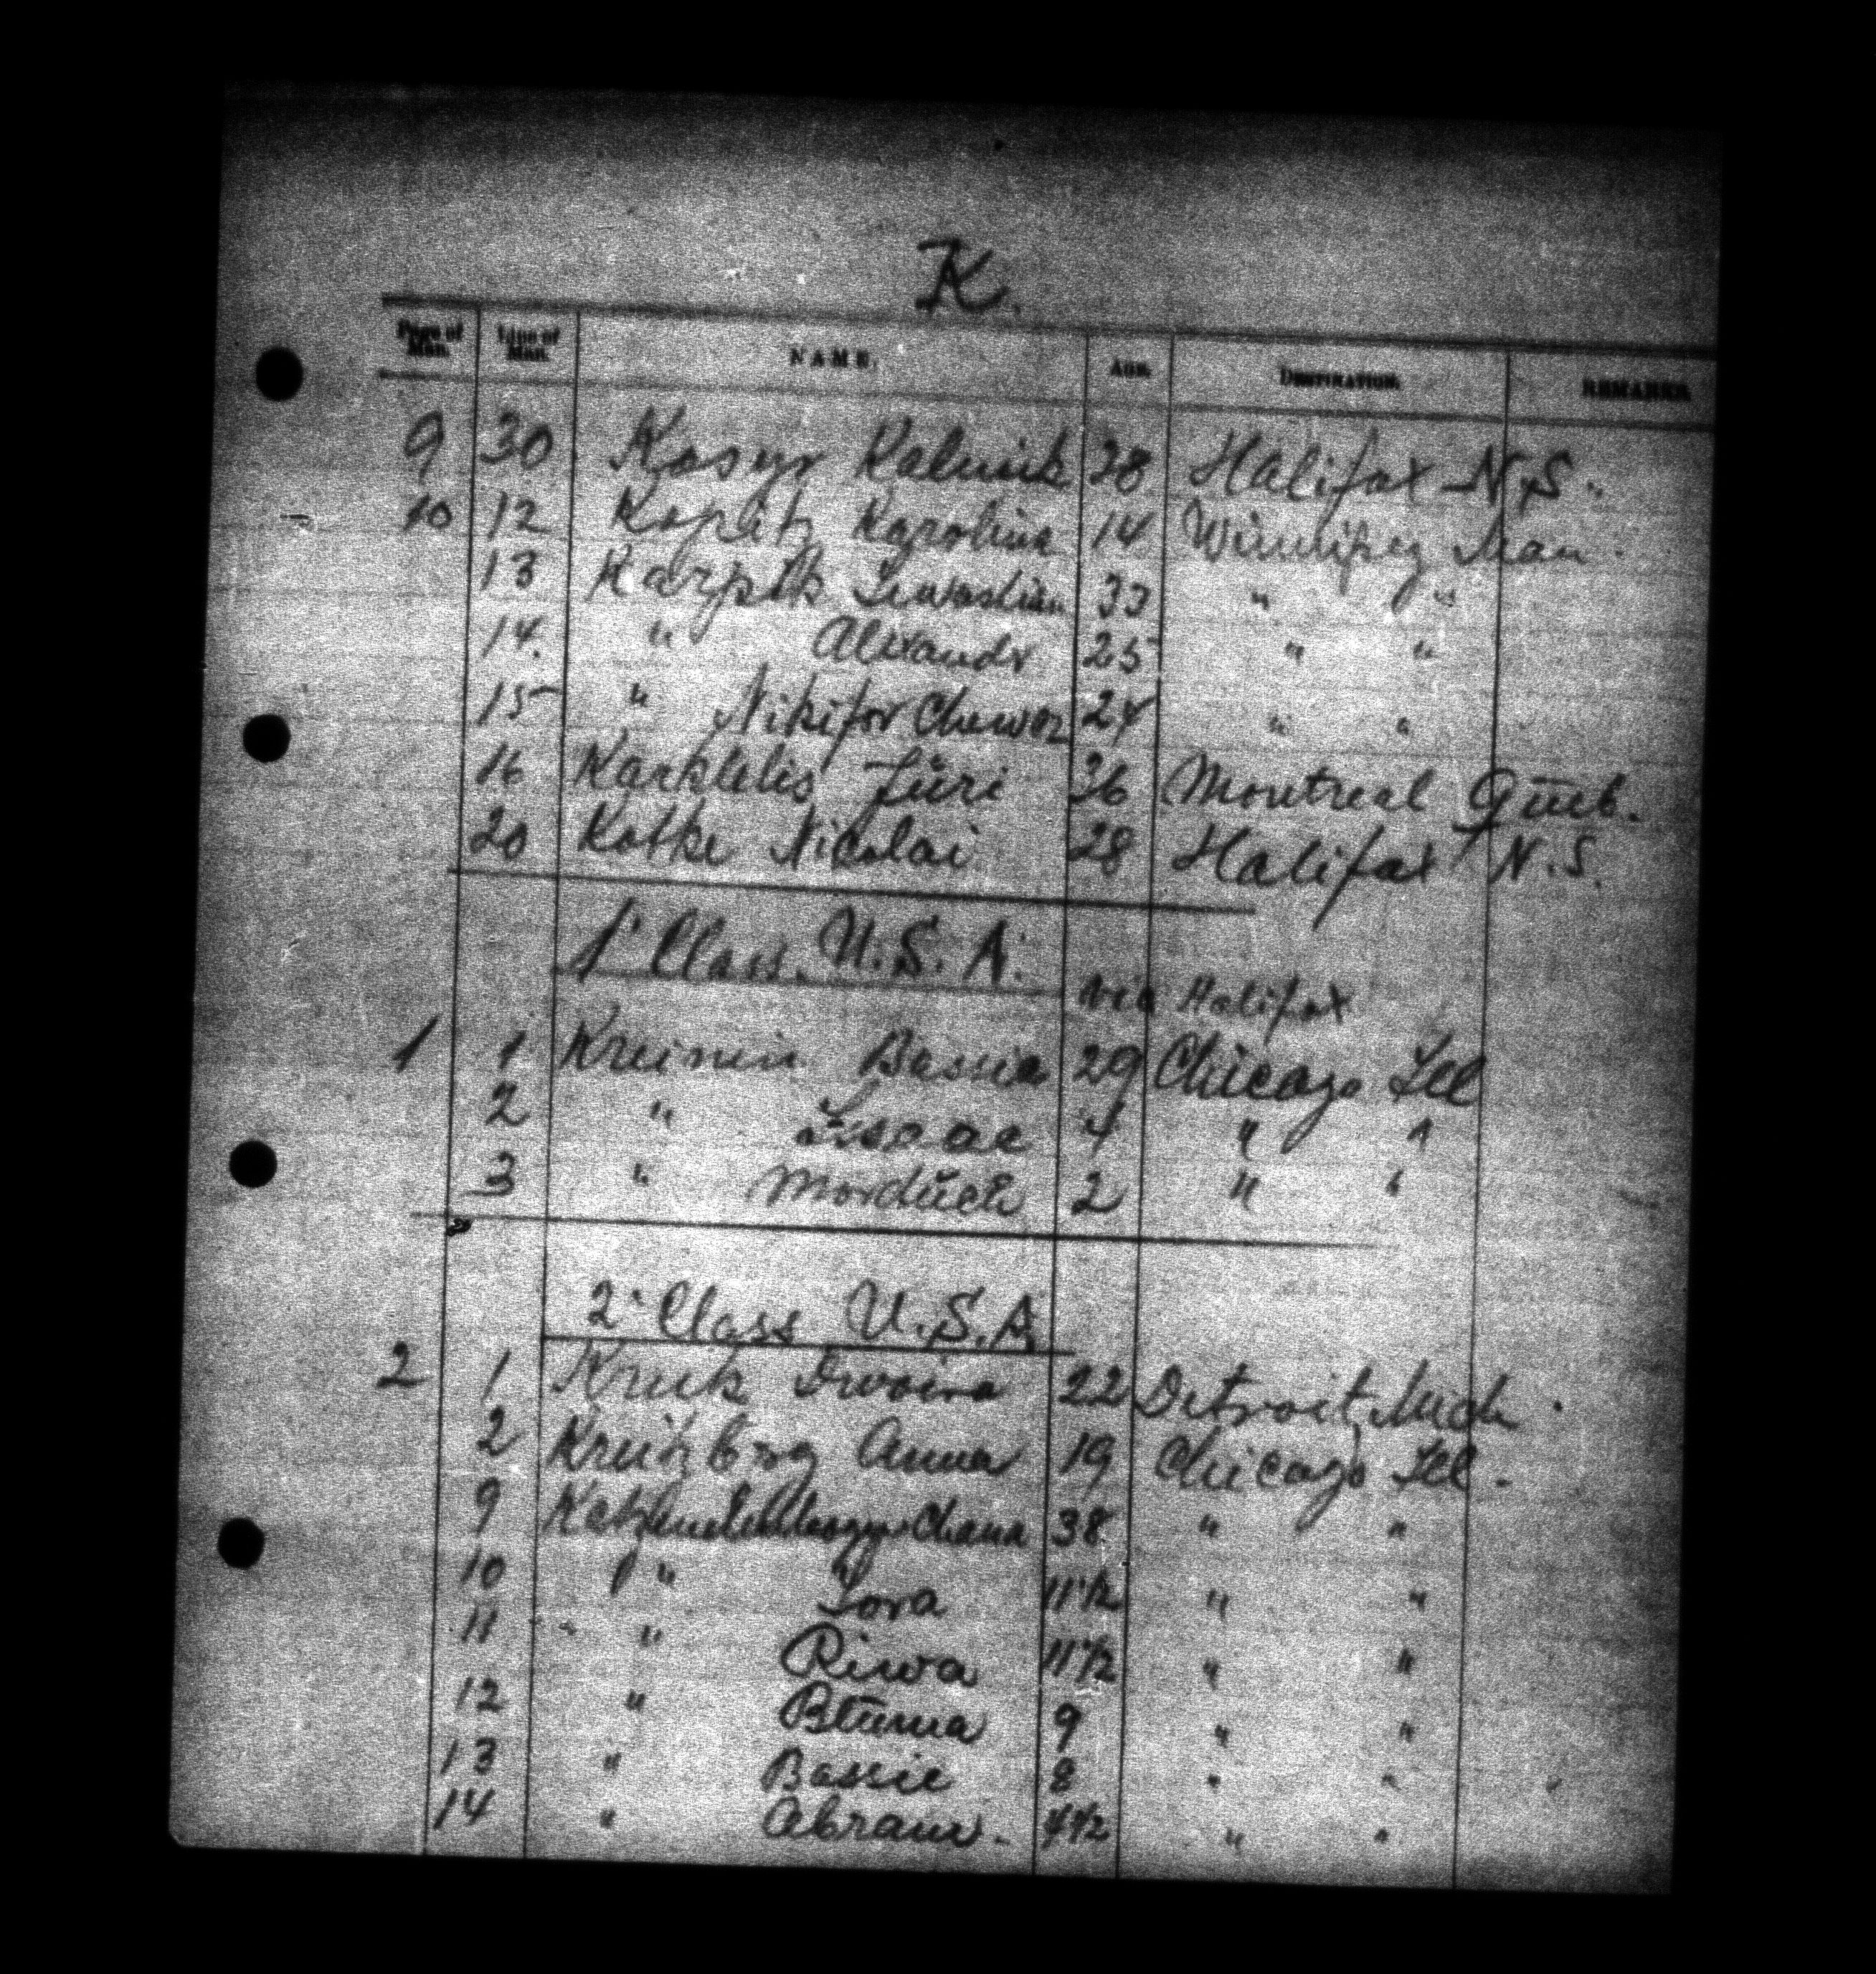 K.
Page of Man. Line of Man. NAME. AGE. DESTINATION. REMARKS
9 30 Kosyr Kalinik 28 Halifax N.S.
10 12 Koplitz Karolina 14 Winnipeg Man.
13 Karpik 33 " "
14. " Alexandr 25 " "
15 " Nikifor 24 " "
16 Karklelis Jüri 36 Montreal Queb.
20 Kotke Nicolai 28 Halifax N.S.
1' Class. U.S.A.
via Halifax
1 1 Kreinin Bassia 29 Chicago Ill
2 " Issaac 4 " "
3 " Morduch 2 " "
2' Class U.S.A.
2 1 Kruk Dwoira 22 Detroit Mich.
2 Kreitzberg Anna 19 Chicago Ill.
9 Chana 38 " "
10 " 11 1/2 " "
11 " Riwa 11 1/2 " "
12 " Bluma 9 " "
13 " Bassie 8 " "
14 " Abram. 4 1/2 " "